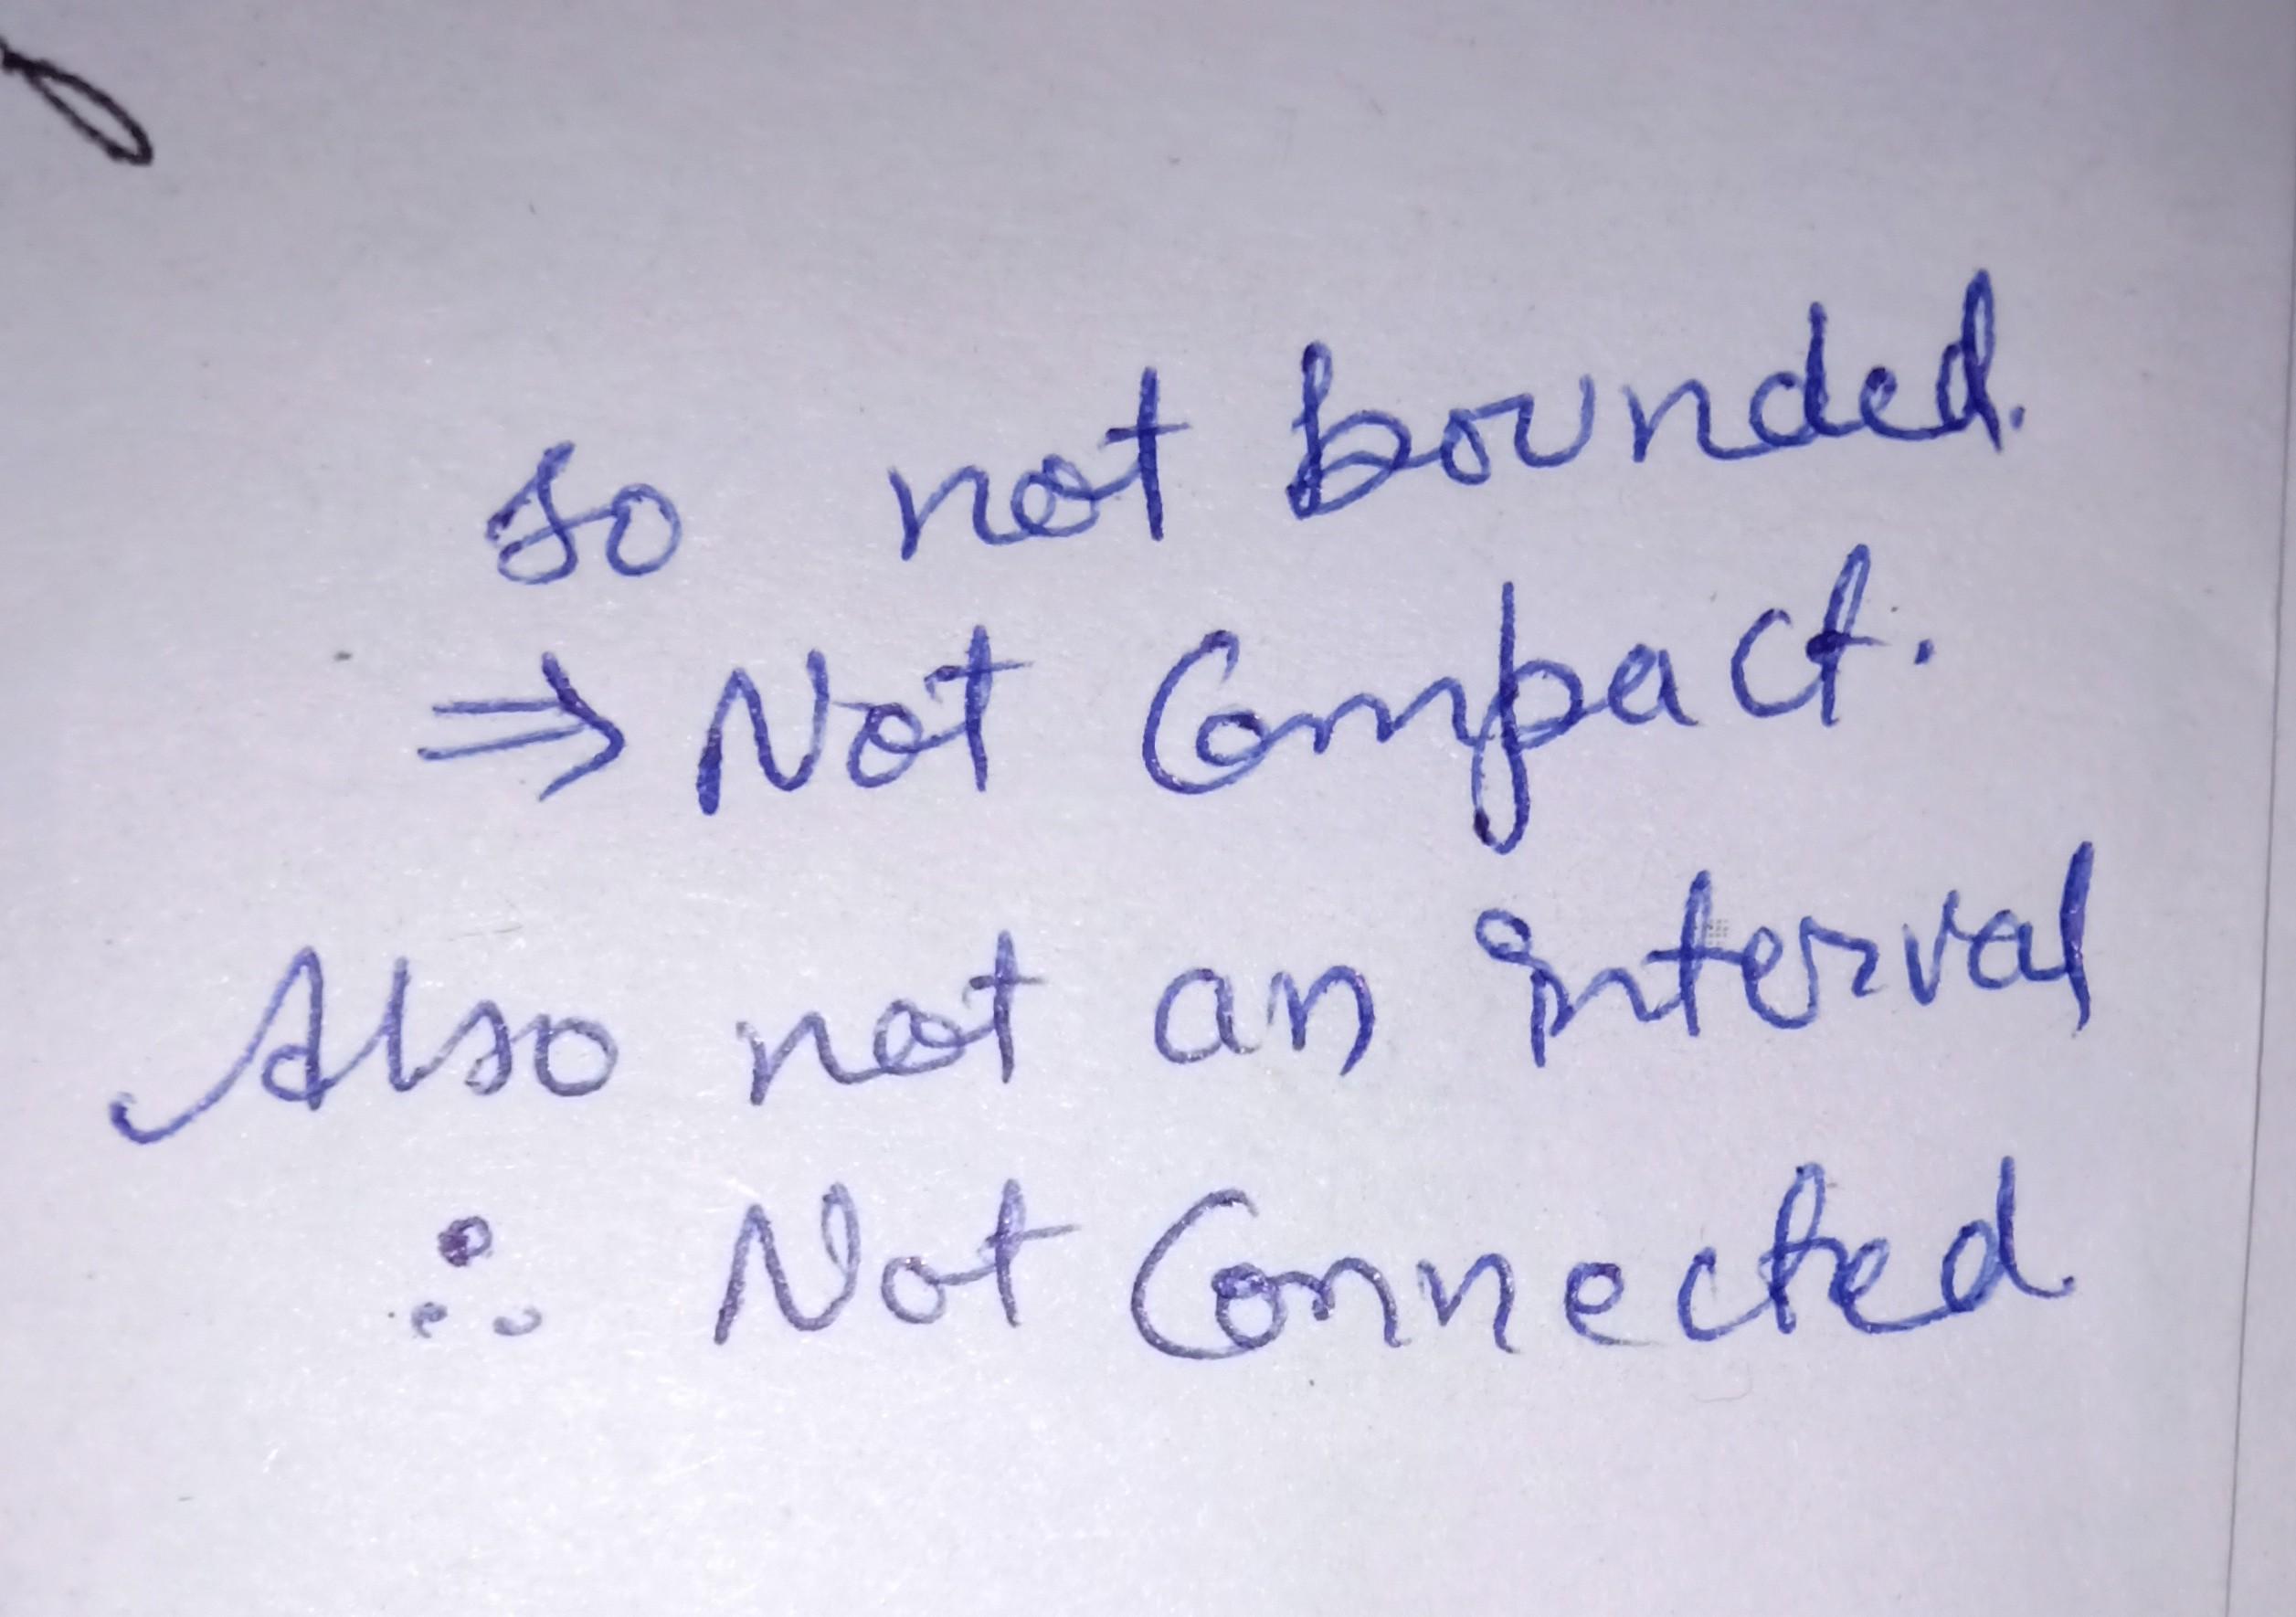 so not bounded.
⇒ Not Compact.
Also not an interval
∴ Not Connected